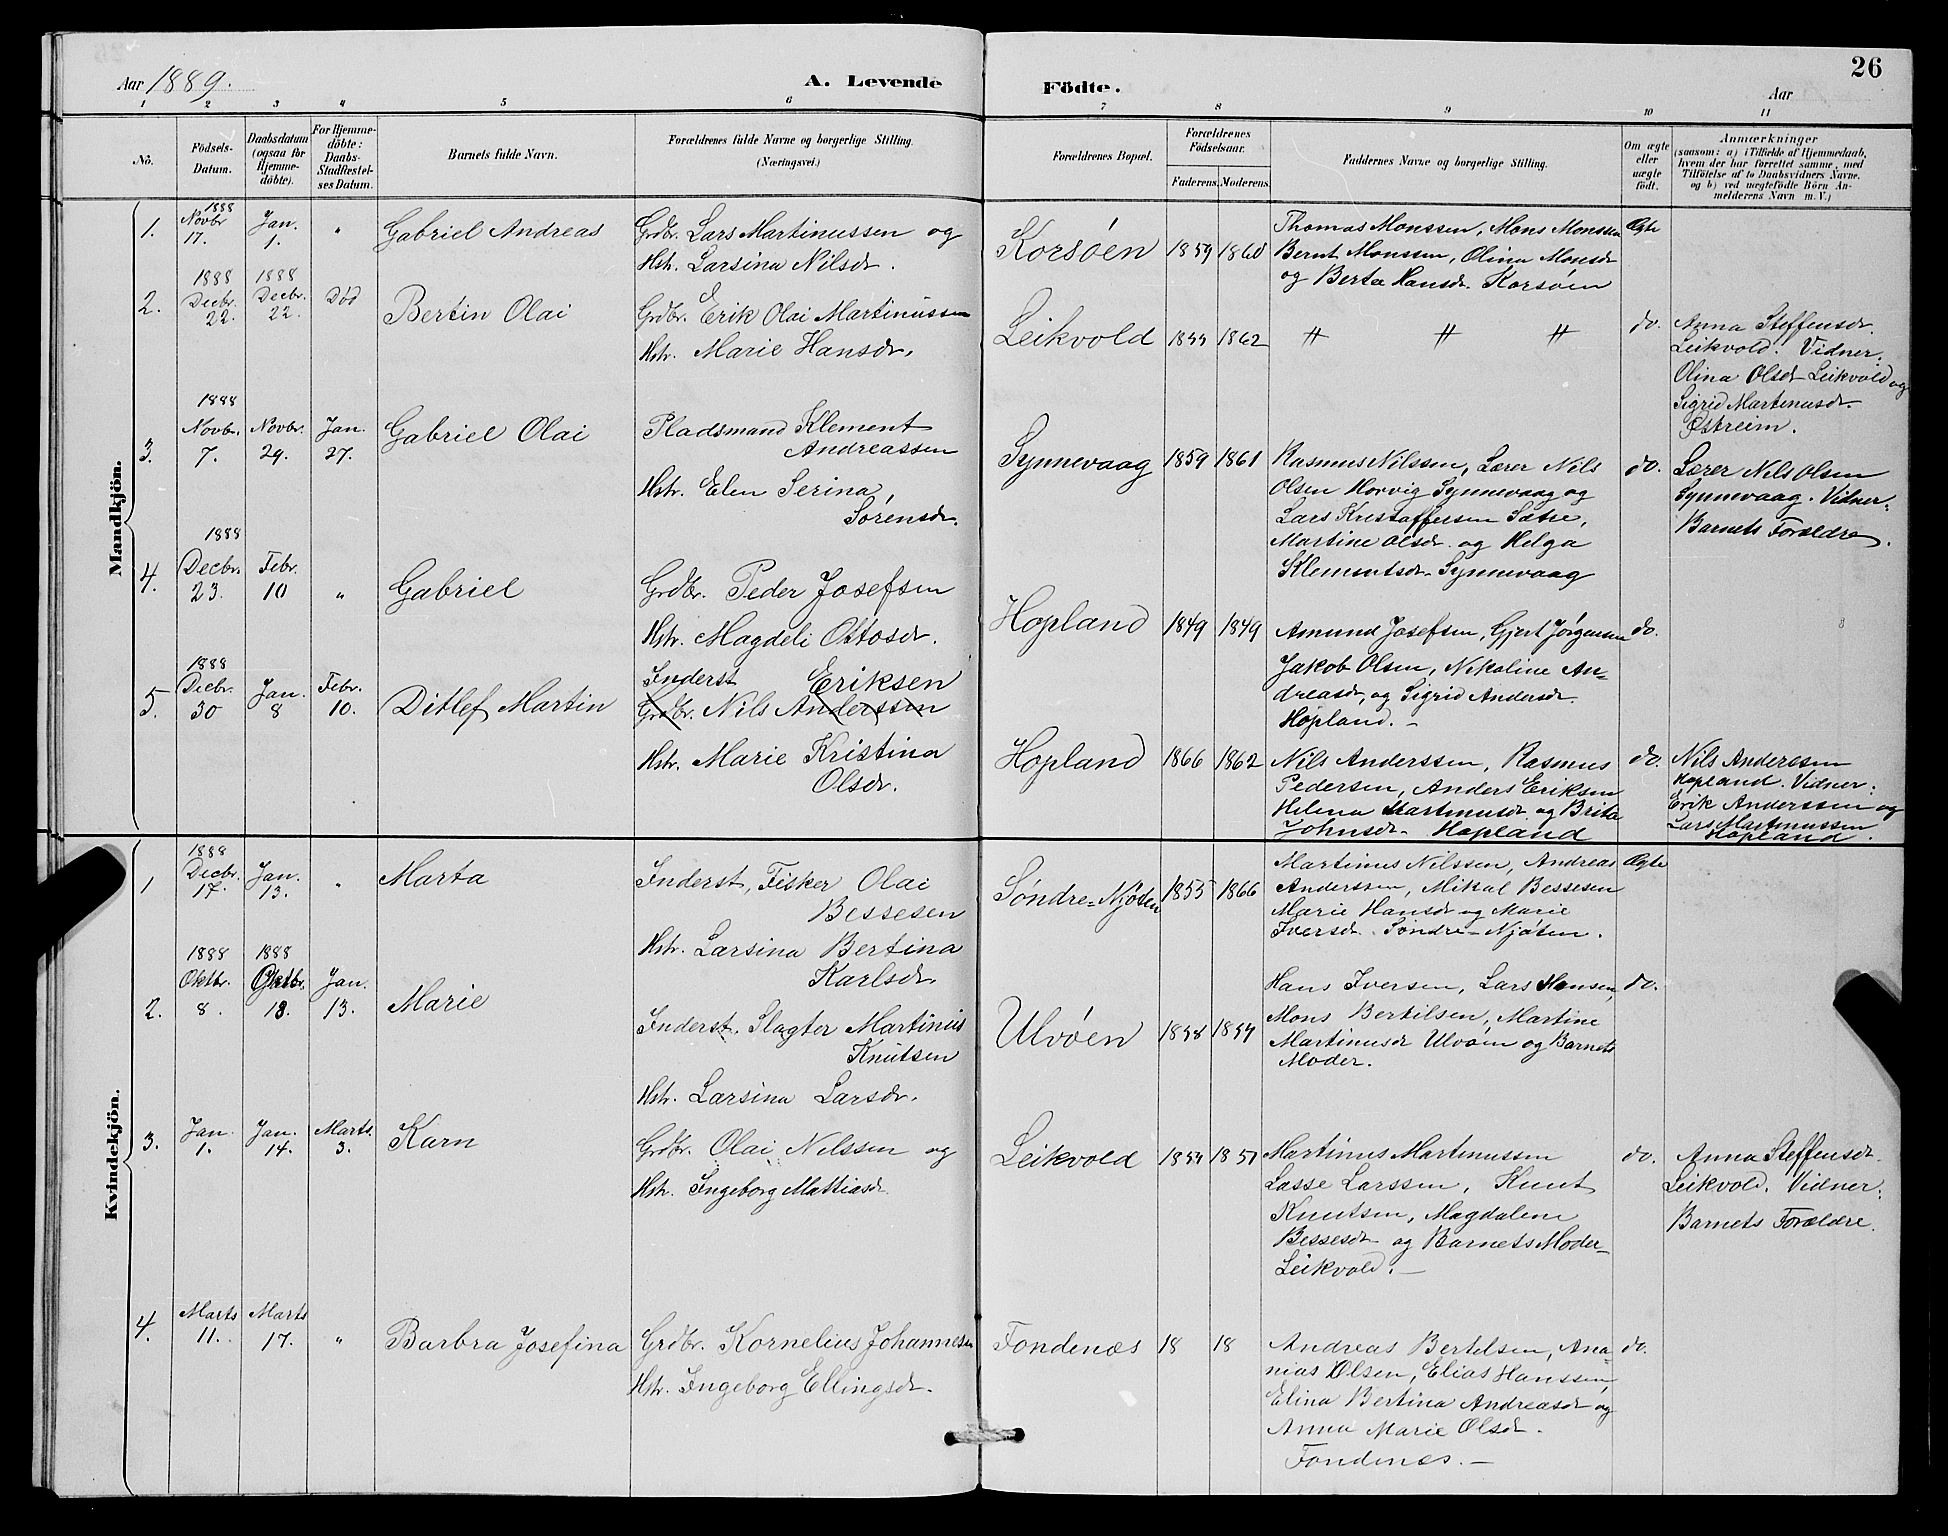 26
Aar 1889.
A. Levende Födte.
Aar
1 2 3 4 5 6 7 8 9 10 11
No.
Födsels-Datum.
Daabsdatum (ogsaa for Hjemme-döbte).
For Hjemme-döbte: Daabs-Stadfæstel-ses Datum.
Barnets fulde Navn.
Forældrenes fulde Navne og borgerlige Stilling.
(Næringsvei.)
Forældrenes Bopæl.
Forældrenes Födselsaar.
Faderens. Moderens.
Faddernes Navne og borgerlige Stilling.
Om ægte eller uægte födt.
Anmærkninger
(saasom: a) i Tilfælde af Hjemmedaab,
hvem der har forrettet samme, med
Tilföielse af to Daabsvidners Navne,
og b) ved uægtefödte Börn An-
melderens Navn m. V.)
Mandkjön.
1. 1888 Novbr. 17. Jan. 1. " Gabriel Andreas
Grdbr. Lars Martinussen og
Hstr. Larsina Nilsdr.
Korsøen 1859 1860
Thomas Monssen, Mons Monssen
Bernt Monssen, Olina Monsdr
og Berta Hansdr. Korsøen
Ægte
2. 1888 Decbr. 22. 1888 Decbr. 22. Død Bertin Olai
Grdbr. Erik Olai Martinussen
Hstr. Marie Hansdr.
Leikvold 1855 1862
" " "
do.
Anna Steffensdr.
Leikvold. Vidner:
Olina Olsdr Leikvold og
Sigrid Martenusdr.
Østreim.
3. 1888 Novbr. 7. Novbr. 29. Jan. 27. Gabriel Olai
Pladsmand Klement
Andreassen
Hstr. Elen Serina
Sørensdr.
Synnevaag 1859 1861
Rasmus Nilssen, Lærer Nils
Olsen Horvig Synnevaag og
Lars Kristaffersen Sætre,
Martine Olsdr. og Helga
Klementsdr. Synnevaag
do.
Lærer Nils Olsen
Synnevaag. Vidner:
Barnets Forældre.
4. 1888 Decbr. 23. Febr. 10 " Gabriel
Grdbr. Peder Josefsen
Hstr. Magdeli Ottosdr.
Hopland 1849 1849
Amund Josefsen, Gjert Jørgensen
Jakob Olsen, Nikoline An=
dreasdr, og Sigrid Andersdr.
Hopland. -
do.
5. 1888 Decbr. 30 Jan. 8 Febr. 10. Ditlef Martin
Inderst Eriksen
Grdbr. Nils Anderssen
Hstr. Marie Kristina
Olsdr.
Hopland 1866 1862
Nils Anderssen, Rasmus
Pedersen, Anders Eriksen
Helena Martinusdr og Brita
Johnsdr. Hopland
do.
Nils Anderssen
Hopland. Vidner:
Erik Anderssen og
Lars Martinussen
Hopland.
Kvindekjön.
1 1888 Decbr. 17. Jan. 13. " Marta
Inderst, Fisker Olai
Bessesen
Hstr. Larsina Bertina
Karlsdr
Søndre=Njøten 1855 1866
Martinus Nilssen, Andreas
Anderssen, Mikal Bessesen
Marie Hansdr og Marie
Iversdr. Søndre-Njøten.
Ægte
2. 1888 Oktbr. 8. 1888 Oktbr. 13. Jan. 13. Marie
Inderst. Slagter Martinus
Knutsen
Hstr. Larsina Larsdr.
Ulvøen 1858 1854
Hans Iversen, Lars Hansen,
Mons Bertilsen, Martine
Martinusdr Ulvøen og Barnets
Moder.
do.
3. Jan. 1. Jan. 14. Marts. 3. Karn
Grdbr. Olai Nilssen og
Hstr. Ingeborg Mattiasdr.
Leikvold 1854 1851
Martinus Martinussen
Lasse Larssen, Knut
Knutsen, Magdalene
Bessesdr og Barnets Moder-
Leikvold. -
do.
Anna Steffensdr.
Leikvold. Vidner:
Barnets Forældre.
4. Marts 11. Marts 17. " Barbra Josefina
Grdbr. Kornelius Johannesen
Hstr. Ingeborg Ellingsdr.
Fondenæs 18 18
Andreas Bertelsen, Ana=
nias Olsen, Elias Hanssen,
Elina Bertina Andreasdr og
Anna Marie Olsdr.
Fondenæs. -
do.